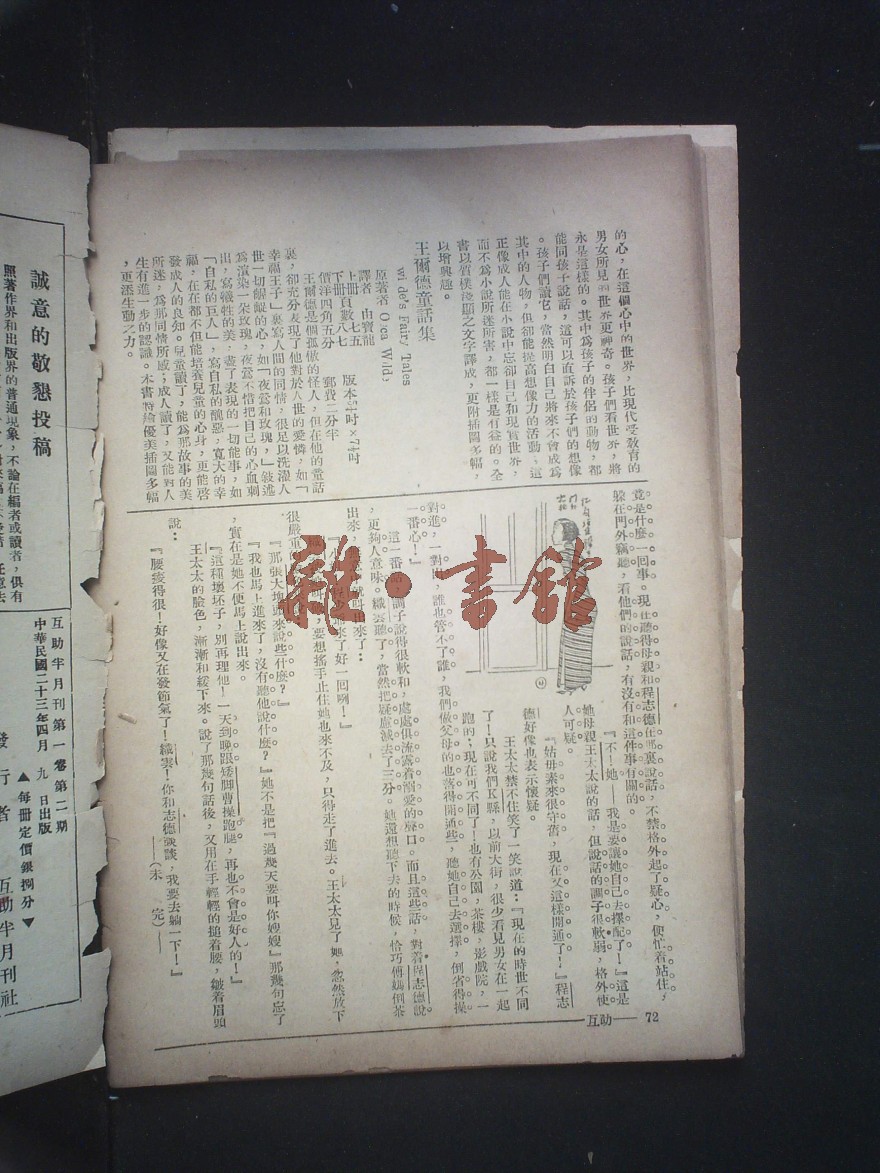 的心，在這個心中的世界，比現代受教育的
男女所見的世界更神奇。孩子們看世界，將
永是這樣的。其中爲孩子的伴侶的動物，都
能同孩子說話，這可以直訴於孩子們的想像
。孩子們讀它，當然明白自己將來不會成爲
其中的人物，但卻能提高想像力的活動；這
正像成人能在小說中忘卻自己和現實世界，
而不爲小說所迷所害，都一樣是有益的。全
書以質樸淺顯之文字譯成，更附插圖多幅，
以增興趣。
王爾德童話集
Fairy Tales
原著者
譯者 由寶龍
上冊頁數七五
下冊 八七
版本5¼吋×7¼吋
價洋四角五分 郵費二分半
王爾德是個孤傲的怪人，但在他的童話
裏，卻充分表現了他對於人世的愛憐，如「
幸福王子」裏寫人間的同情，很足以洗滌人
世一切齷齪的心，如「夜鶯和玫瑰，」敍述
爲渲染一朵玫瑰，夜鶯不惜把自己的心血刺
出，寫犧牲的美，盡了表現的一切能事，如
「自私的巨人」，寫自私的醜惡，寬大的幸
福，在在都不但能培養兒童的心身，更能啓
發成人的良知。兒童讀了，能爲那故事的美
所迷，爲那同情所感；成人讀了，又能對人
生有進一步的認識。本書特繪優美插圖多幅
，更添生動之力。
72
互助
竟是什麼一回事。現在聽得母親和程志德在那裏說話，不禁格外起了疑心，便忙着站住，
躲在門外竊聽，看他們的說話，有沒有和這件事有關的。
『不！她——我是要讓她自己去擇配了！』這是
她母親王太太說的話，但說話的調子很軟弱，格外使
人可疑。
『姑母素來很守舊，現在又這樣開通了！』程志
德好像也表示懷疑。
王太太禁不住笑了一笑說道：『現在的時世不同
了！只說我們K縣，以前大街，很少看見男女在一起
跑的；現在可不同了！也有公園，茶樓，影戲院，一
對進，一對出，誰也管不了誰，我們做父母的也落得開通些，聽她自己去選擇，倒省得操
一番心！』
這一番話，調子說得很軟和，處處俱流露着溺愛的聲口。而且這些話，對着程志德說
，更夠人意味。織雲聽了，當然把疑慮減去了三分。她還想聽下去的時候，恰巧傅媽倒茶
出來，叫出來了：
『小 來了好一回咧！』
要想搖手止住她也來不及，只得走了進去。王太太見了她，忽然放下
很嚴重的
『那張大塊頭來說些什麼？』
『我也馬上進來了，沒有聽他說什麼？』她不是把『過幾天要叫你嫂嫂』那幾句忘了
，實在是她不便馬上說出來。
『這種壞坯子，別再理他！一天到晚跟矮脚曹操跑腿，再也不會是好人的！』
王太太的臉色，漸漸和緩下來。說了那幾句話後，又用在手輕輕的搥着腰，皺着眉頭
說：
『腰痠得很！好像又在發節氣了！織雲！你和志德談談，我要去躺一下！』
——（未 完）——
雜·書館
誠意的敬懇投稿
照著作界和出版界的普通現象，不論在編者或讀者，俱有
互助半月刊第一卷第二期
中華民國二十三年四月 九 日出版
▲每冊定價銀捌分▼
發 行 者 互助半月刊社